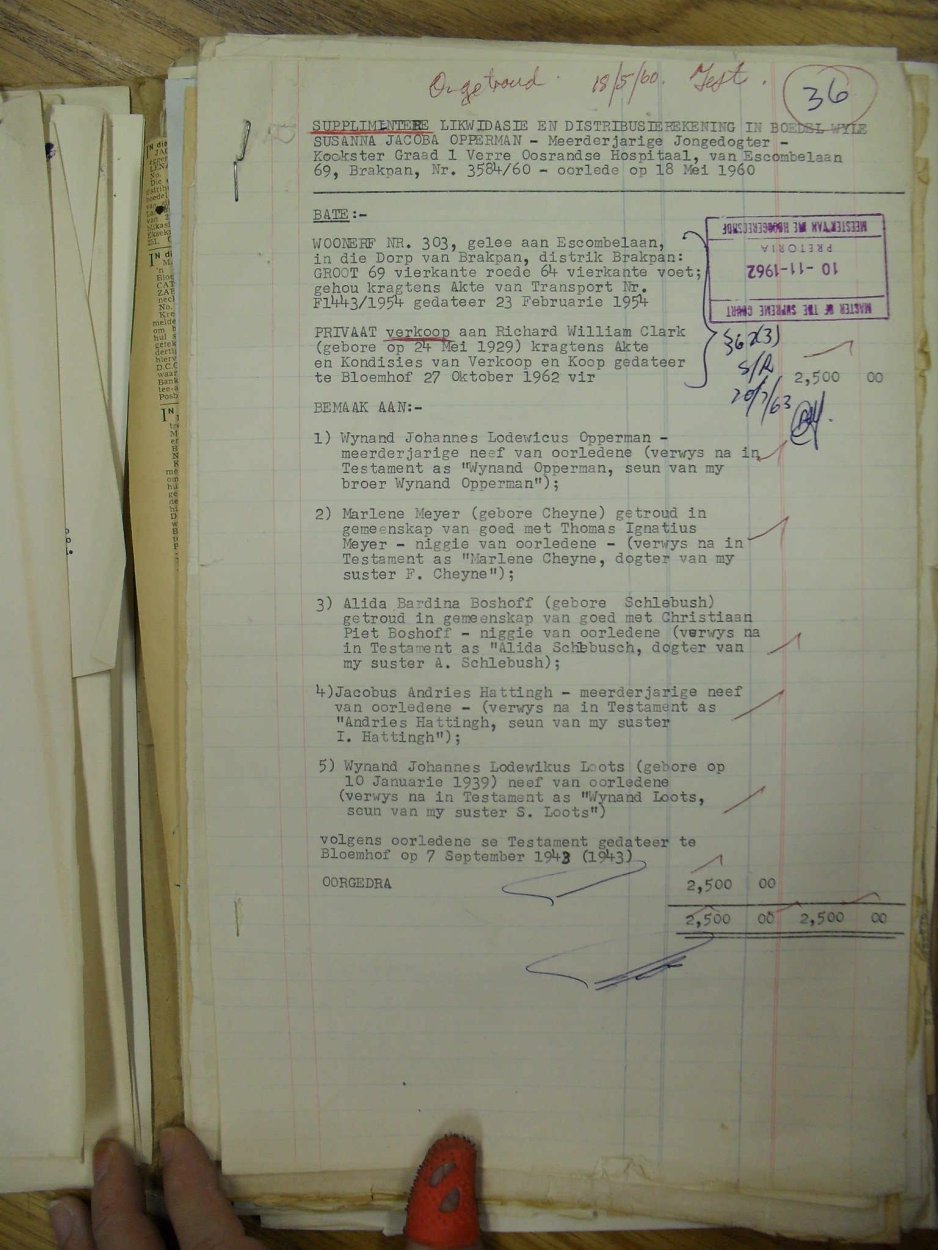 Ongetroud 18/5/60. Test.
36
SUPPLIMINTERE LIKWIDASIE EN DISTRIBUSIEREKENING IN BOEDEL WYLE
SUSANNA JACOBA OPPERMAN - Meerderjarige Jongedogter -
Kookster Graad 1 Verre Oosrandse Hospitaal, van Escombelaan
69, Brakpan, Nr. 3584/60 - oorlede op 18 Mei 1960
BATE:-
WOONERF NR. 303, gelee aan Escombelaan,
in die Dorp van Brakpan, distrik Brakpan:
GROOT 69 vierkante roede 64 vierkante voet;
gehou kragtens Akte van Transport Nr.
F1443/1954 gedateer 23 Februarie 1954
MASTER OF THE SUPREME COURT
10-11-1962
PRETORIA
MEESTER VAN DIE HOOGGEREGSHOF
PRIVAAT verkoop aan Richard William Clark
(gebore op 24 Mei 1929) kragtens Akte
en Kondisies van Verkoop en Koop gedateer
te Bloemhof 27 Oktober 1962 vir 2,500 00
S/R
20/7/63
BEMAAK AAN:-
1) Wynand Johannes Lodewicus Opperman -
meerderjarige neef van oorledene (verwys na in
Testament as "Wynand Opperman, seun van my
broer Wynand Opperman");
2) Marlene Meyer (gebore Cheyne) getroud in
gemeenskap van goed met Thomas Ignatius
Meyer - niggie van oorledene - (verwys na in
Testament as "Marlene Cheyne, dogter van my
suster F. Cheyne");
3) Alida Bardina Boshoff (gebore Schlebush)
getroud in gemeenskap van goed met Christiaan
Piet Boshoff - niggie van oorledene (verwys na
in Testament as "Alida Schlebusch, dogter van
my suster A. Schlebush);
4)Jacobus Andries Hattingh - meerderjarige neef
van oorledene - (verwys na in Testament as
"Andries Hattingh, seun van my suster
I. Hattingh");
5) Wynand Johannes Lodewikus Loots (gebore op
10 Januarie 1939) neef van oorledene
(verwys na in Testament as "Wynand Loots,
seun van my suster S. Loots")
volgens oorledene se Testament gedateer te
Bloemhof op 7 September 1943 (1943)
OORGEDRA 2,500 00
2,500 00 2,500 00